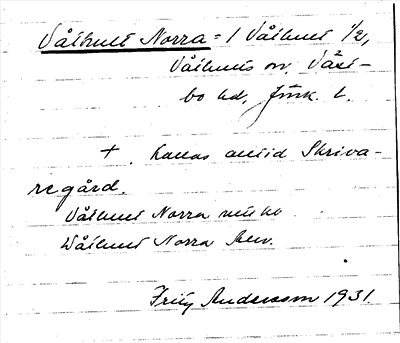 Våthult Norra = 1 Våthult 1/2,
Våthults sn, Västbo
bo hd, Jönk. l.
+. kallas alltid Skriva-
regård.
Våthult Norra
Wåthult Norra
Fritz Andersson 1931.